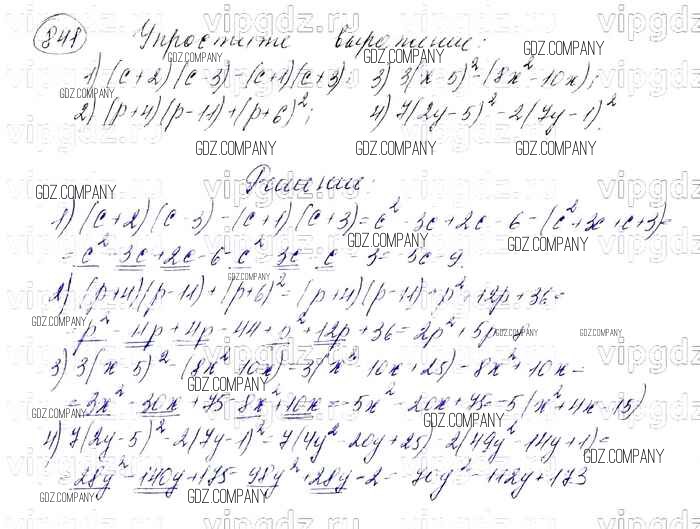 841 Упростите выражение:
1) (c+2)(c-3)-(c+1)(c+3); 3) 3(x-5)²-(8x²-10x);
2) (p+4)(p-11)+(p+6)²; 4) 7(2y-5)²-2(7y-1)²
Решение:
1) (c+2)(c-3)-(c+1)(c+3)=c²-3c+2c-6-(c²+3c+c+3)=
=c²-3c+2c-6-c²-3c-c-3=-3c-9.
2) (p+4)(p-11)+(p+6)²=(p+4)(p-11)+p²+12p+36=
=p²-11p+4p-44+p²+12p+36=2p²+5p-8
3) 3(x-5)²-(8x²-10x)=3(x²-10x+25)-8x²+10x=
=3x²-30x+75-8x²+10x=-5x²-20x+75=-5(x²+4x-15)
4) 7(2y-5)²-2(7y-1)²=7(4y²-20y+25)-2(49y²-14y+1)=
=28y²-140y+175-98y²+28y-2=-70y²-112y+173
vipgdz.ru
GDZ.COMPANY